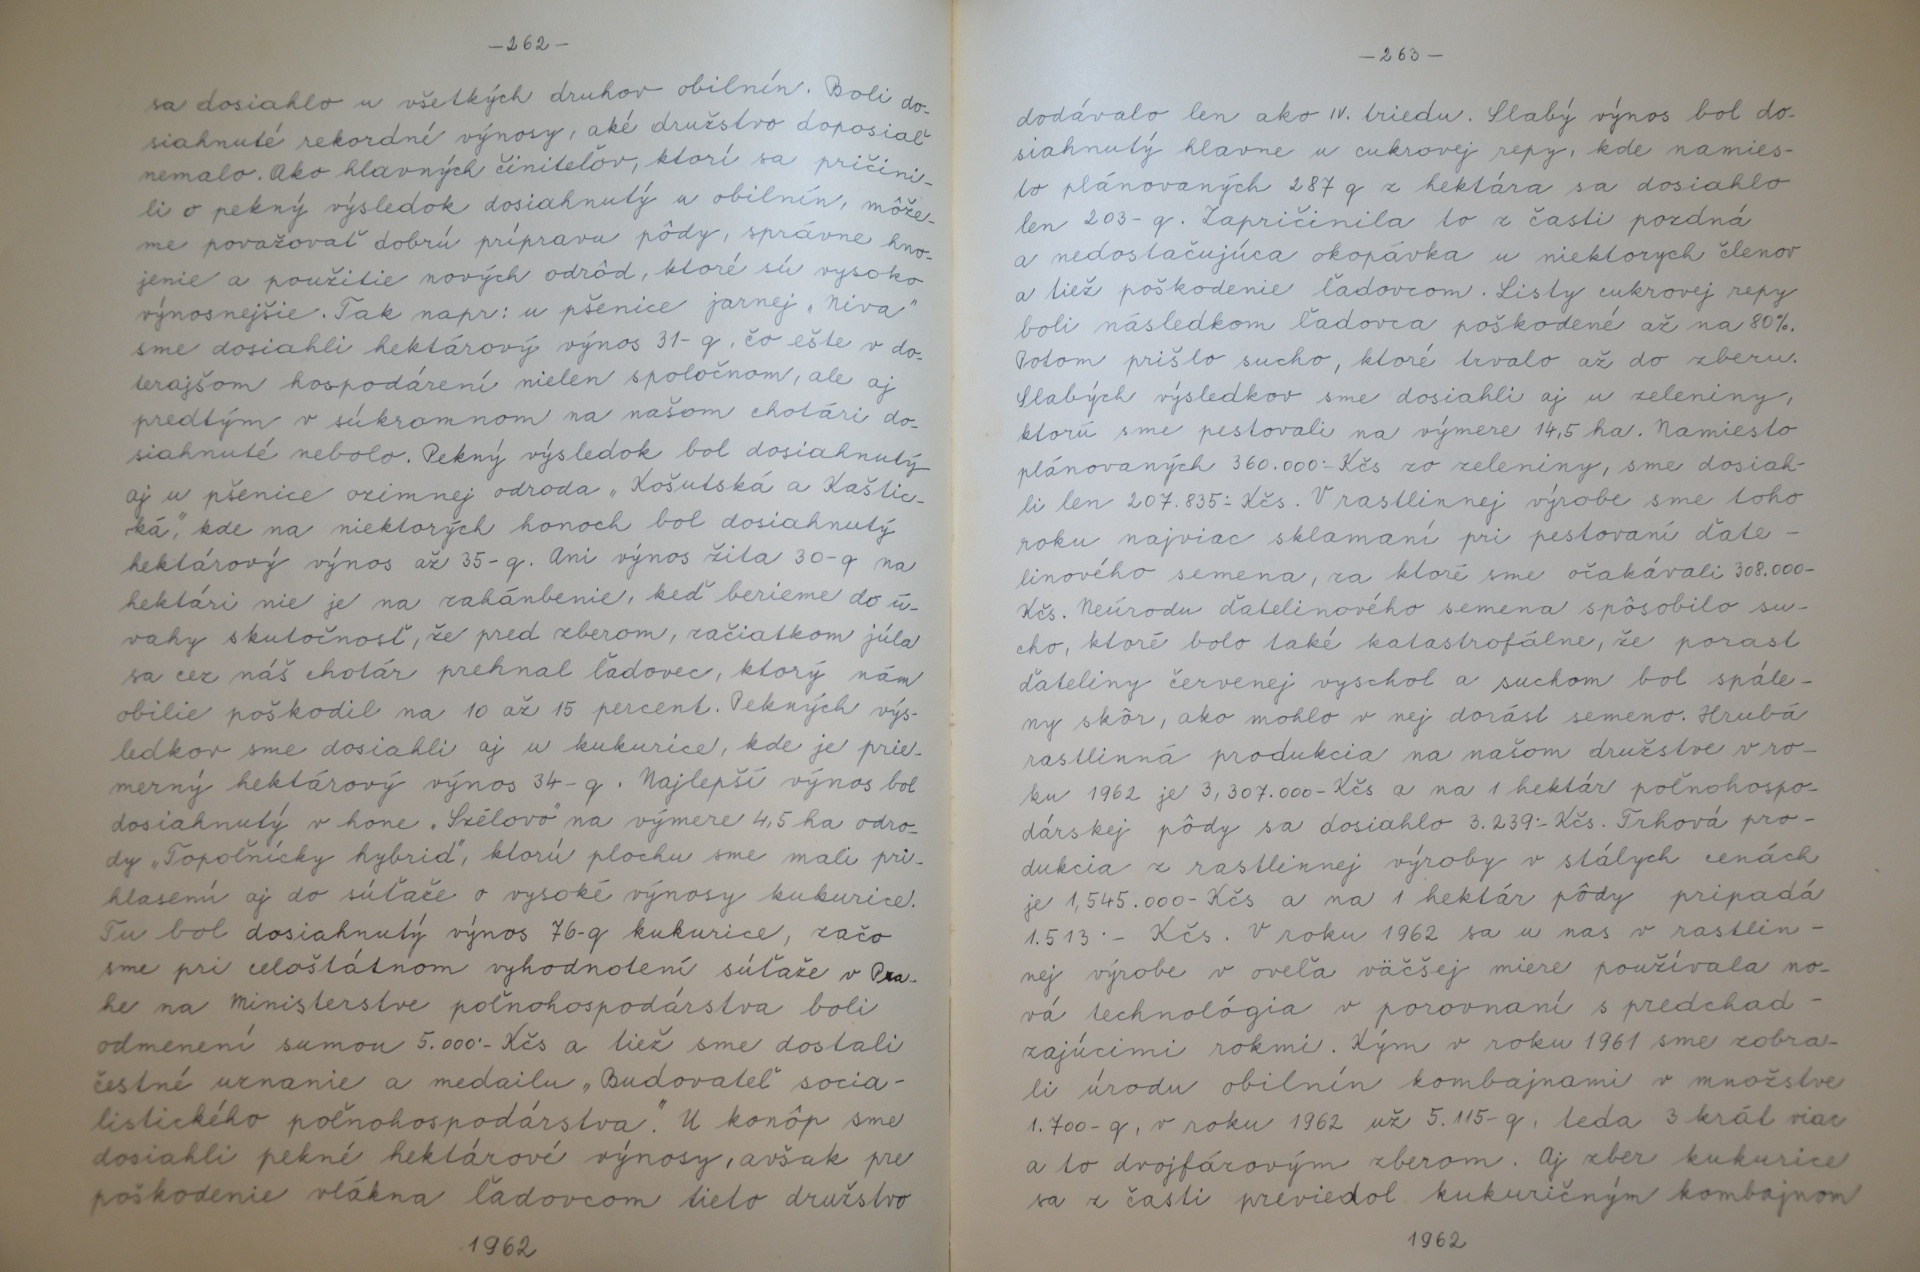 -262-
sa dosiahlo u všetkých druhov obilnín. Boli do-
siahnuté rekordní výnosy, aké družstvo doposiaľ
nemalo. Ako hlavných činiteľov, ktorí sa pričini-
li o pekný výsledok dosiahnutý u obilnín, môže-
me považovať dobrú prípravu pôdy, správne hno-
jenie a použitie nových odrôd, ktoré sú vysoko
výnosnejšie. Tak napr: u pšenice jarnej „Niva"
sme dosiahli hektárový výnos 31-q, čo ešte v do-
terajšom hospodárení nielen spoločnom, ale aj
predtým v súkromnom na našom chotári do-
siahnuté nebolo. Pekný výsledok bol dosiahnutý
aj u pšenice ozimnej odroda „Košutská a Kaštic-
ká", kde na niektorých honoch bol dosiahnutý
hektárový výnos až 35-q. Ani výnos žita 30-q na
hektári nie je na zahánbenie, keď berieme do ú-
vahy skutočnosť, že pred zberom, začiatkom júla
sa cez náš chotár prehnal ľadovec, ktorý nám
obilie poškodil na 10 až 15 percent. Pekných výs-
ledkov sme dosiahli aj u kukurice, kde je prie-
merný hektárový výnos 34-q. Najlepší výnos bol
dosiahnutý v hone „Szélovo" na výmere 4,5 ha odro-
dy „Topoľnícky hybrid", ktorú plochu sme mali pri-
hlasenú aj do súťaže o vysoké výnosy kukurice.
Tu bol dosiahnutý výnos 76-q kukurice, začo
sme pri celoštátnom vyhodnotení súťaže v Pra-
he na Ministerstve poľnohospodárstva boli
odmenení sumou 5.000·- Kčs a tiež sme dostali
čestné uznanie a medailu „Budovateľ socia-
listického poľnohospodárstva." U konôp sme
dosiahli pekné hektárové výnosy, avšak pre
poškodenie vlákna ľadovcom tieto družstvo
1962
-263-
dodávalo len ako IV. triedu. Slabý výnos bol do-
siahnutý hlavne u cukrovej repy, kde namies-
to plánovaných 287 q z hektára sa dosiahlo
len 203- q. Zapričinila to z časti pozdná
a nedostačujúca okopávka u niektorych členov
a tiež poškodenie ľadovcom. Listy cukrovej repy
boli následkom ľadovca poškodené až na 80%.
Potom prišlo sucho, ktoré trvalo až do zberu.
Slabých výsledkov sme dosiahli aj u zeleniny,
ktorú sme pestovali na výmere 14,5 ha. Namiesto
plánovaných 360.000·- Kčs zo zeleniny, sme dosiah-
li len 207.835·- Kčs. V rastlinnej výrobe sme toho
roku najviac sklamaní pri pestovaní ďate-
linového semena, za ktoré sme očakávali 308.000-
Kčs. Neúrodu ďatelinového semena spôsobilo su-
cho, ktoré bolo také katastrofálne, že porast
ďateliny červenej vyschol a suchom bol spále-
ny skôr, ako mohlo v nej dorásť semeno. Hrubá
rastlinná produkcia na našom družstve v ro-
ku 1962 je 3,307.000- Kčs a na 1 hektár poľnohospo-
dárskej pôdy sa dosiahlo 3.239·- Kčs. Trhová pro-
dukcia z rastlinnej výroby v stálych cenách
je 1,545.000- Kčs a na 1 hektár pôdy pripadá
1.513·- Kčs. V roku 1962 sa u nas v rastlin-
nej výrobe v oveľa väčšej miere používala no-
vá technológia v porovnaní s predchad-
zajúcimi rokmi. Kým v roku 1961 sme zobra-
li úrodu obilnín kombajnami v množstve
1.700- q, v roku 1962 už 5.115- q, teda 3 krát viac
a to dvojfázovým zberom. Aj zber kukurice
sa z časti previedol kukuričným kombajnom
1962